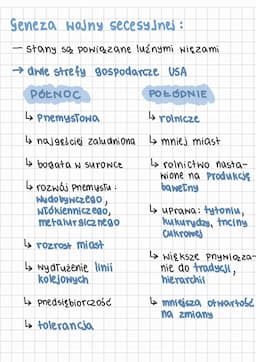 Geneza wojny secesyjnej:
— stany są powiązane luźnymi więzami
→ dwie strefy gospodarcze USA
PÓŁNOC
↳ przemysłowa
↳ najgęściej zaludniona
↳ bogata w surowce
↳ rozwój przemysłu:
wydobywczego,
włókienniczego,
metalurgicznego
↳ rozrost miast
↳ wydłużenie linii
kolejowych
↳ przedsiębiorczość
↳ tolerancja
POŁUDNIE
↳ rolnicze
↳ mniej miast
↳ rolnictwo nasta-
wione na produkcję
bawełny
↳ uprawa: tytoniu,
kukurydzy, trzciny
cukrowej
↳ większe przywiąza-
nie do tradycji,
hierarchii
↳ mniejsza otwartość
na zmiany